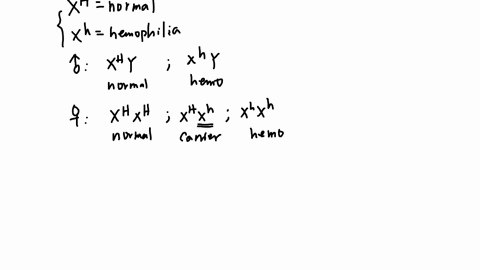 X^H = normal
X^h = hemophilia
♂: X^H Y ; X^h Y
normal hemo
♀: X^H X^H ; X^H X^h ; X^h X^h
normal carrier hemo